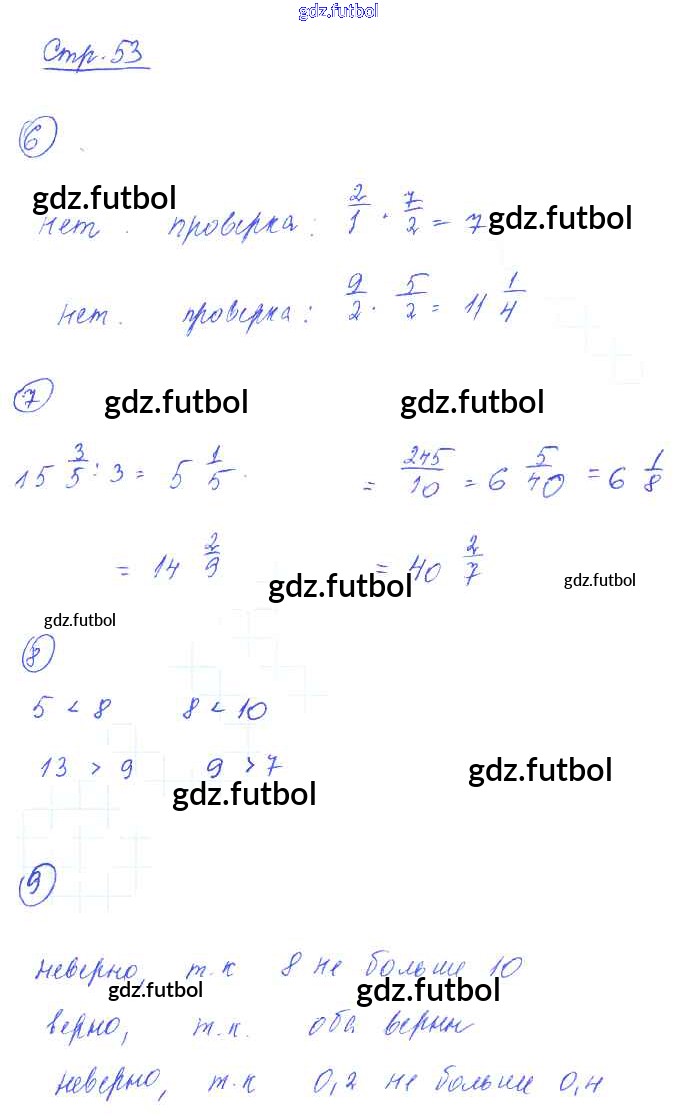 gdz.futbol
Стр. 53
6
gdz.futbol
нет. проверка: 2/1 · 7/2 = 7 gdz.futbol
нет. проверка: 9/2 · 5/2 = 11 1/4
7
gdz.futbol gdz.futbol
15 3/5 : 3 = 5 1/5. = 245/10 = 6 5/40 = 6 1/8
= 14 2/9 = 40 2/7
gdz.futbol gdz.futbol
gdz.futbol
8
5 < 8 8 < 10
13 > 9 9 > 7
gdz.futbol gdz.futbol
9
неверно, т.к 8 не больше 10
gdz.futbol gdz.futbol
верно, т.к. оба верны
неверно, т.к 0,2 не больше 0,4